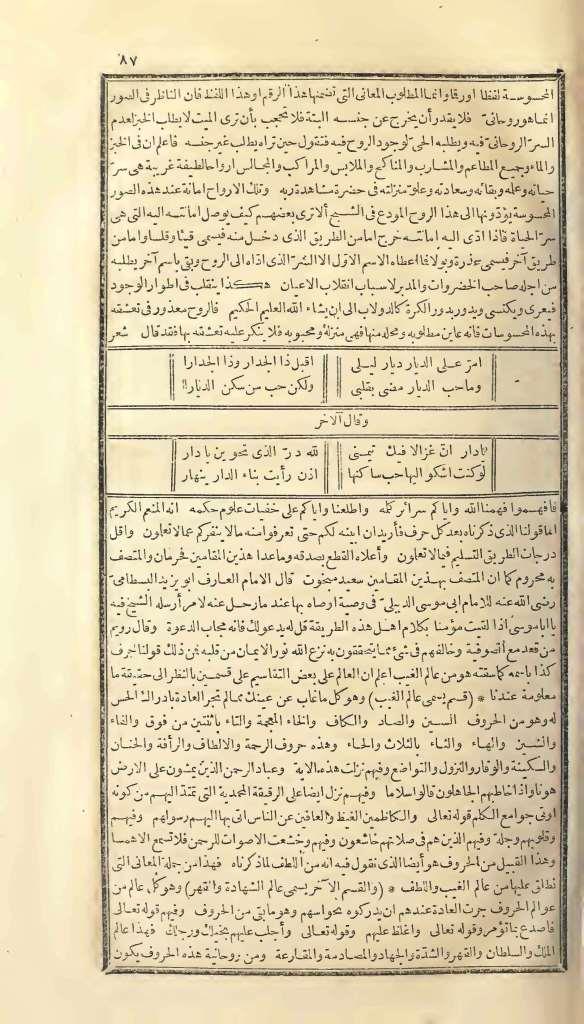 ٨٧
المحسوسة لفظا أو رقما وانما المطلوب المعاني التي تضمنها هذا الرقم أو هذا اللفظ فان الناظر في الصور
انما هو روحاني فلا يقدر أن يخرج عن جنسه البتة فلا تحجب بأن ترى الميت لا يطلب الخبز لعدم
السر الروحاني فيه ويطلبه الحي لوجود الروح فيه فتقول حين تراه يطلب غير جنسه فاعلم ان في الخبز
والماء وجميع المطاعم والمشارب والمناكح والملابس والمراكب والمجالس أرواحا لطيفة غريبة هي سر
حياته وعلمه وبقائه وسعادته وعلو منزلته في حضرة مشاهدة ربه وتلك الارواح امانة عند هذه الصور
المحسوسة يؤدونها الى هذا الروح المودع في الشبح ألا ترى بعضهم كيف يوصل امانته اليه التي هي
سر الحياة فاذا ادى اليه امانته خرج اما من الطريق الذي دخل منه فيسمى قيئا وقلسا واما من
طريق آخر فيسمى عذرة وبولا فما اعطاه الاسم الاول الا السر الذي اداه الى الروح وبقي باسم آخر يطلبه
من اجله صاحب الخضروات والمدبر لاسباب انقلاب الاعيان هكذا يتقلب في اطوار الوجود
فيعرى ويكتسي ويدور بدور الكرة كالدولاب الى ان يشاء الله العليم الحكيم فالروح معذور في تعشقه
بهذه المحسوسات فانه عاين مطلوبه ومحله منها فهي منزله ومحبوبه فلا ينكر عليه تعشقه بها فقد قال شعر
امر على الديار ديار ليلى اقبل ذا الجدار وذا الجدارا
وما حب الديار مضى بقلبي ولكن حب من سكن الديارا
وقال الآخر
يا دار ان غزالا فيك تيمني لله درك الذي تحوين يا دار
لو كنت أشكو اليها حب ساكنها اذن رأيت بناء الدار ينهار
فافهموا فهمنا الله واياكم سرائر كلمه واطلعنا واياكم على خفيات علوم حكمه انه المنعم الكريم
اما قولنا الذي ذكرناه بعد كل حرف فأريد ان ابينه لكم حتى تعرفوا منه ما لا ينفركم عما لا تعلمون واقل
درجات الطريق التسليم فيما لا تعلمون وأعلاه القطع بصدقه وما عدا هذين المقامين فحرمان والمتصف
به محروم كما ان المتصف بهذين المقامين سعيد مبخوت قال الامام العارف ابو يزيد البسطامي
رضي الله عنه للامام ابي موسى الديبلي في وصية أوصاه بها عند ما رحل عنه لامر أرسله الشيخ فيه
يا أبا موسى اذا لقيت مؤمنا بكلام اهل هذه الطريقة قل له يدعو لك فانه مجاب الدعوة وقال رويم
من قعد مع الصوفية وخالفهم في شيء مما يتحققون به نزع الله نور الايمان من قلبه فمن ذلك قولنا حرف
كذا باسمه كما سقته هو من عالم الغيب اعلم ان العالم على بعض التقاسيم على قسمين بالنظر الى حقيقة ما
معلومة عندنا * (قسم يسمى عالم الغيب) وهو كل ما غاب عن عينك مما لم تجر العادة بادراك الحس
له وهو من الحروف السين والصاد والكاف والخاء المعجمة والتاء باثنتين من فوق والفاء
والشين والهاء والثاء بالثلاث والحاء وهذه حروف الرحمة والالطاف والرأفة والحنان
والسكينة والوقار والنزول والتواضع وفيهم نزلت هذه الآية وعباد الرحمن الذين يمشون على الارض
هونا واذا خاطبهم الجاهلون قالوا سلاما وفيهم نزل ايضا على الرقيقة المحمدية التي تمتد اليهم من كونه
اوتي جوامع الكلم قوله تعالى والكاظمين الغيظ والعافين عن الناس اتى بها اليهم رسولهم وفيهم
وقلوبهم وجلة وفيهم الذين هم في صلاتهم خاشعون وفيهم وخشعت الاصوات للرحمن فلا تسمع الا همسا
وهذا القبيل من الحروف هو أيضا الذي نقول فيه انه من اللطف لما ذكرناه فهذا من جملة المعاني التي
نطلق عليها من عالم الغيب واللطف * (والقسم الآخر يسمى عالم الشهادة والقهر) وهو كل عالم من
عوالم الحروف جرت العادة عندهم ان يدركوه بحواسهم وهو ما بقي من الحروف وفيهم قوله تعالى
فاصدع بما تؤمر وقوله تعالى واغلظ عليهم وقوله تعالى وأجلب عليهم بخيلك ورجلك فهذا عالم
الملك والسلطان والقهر والشدة والجهاد والمصادمة والمقارعة ومن روحانية هذه الحروف يكون